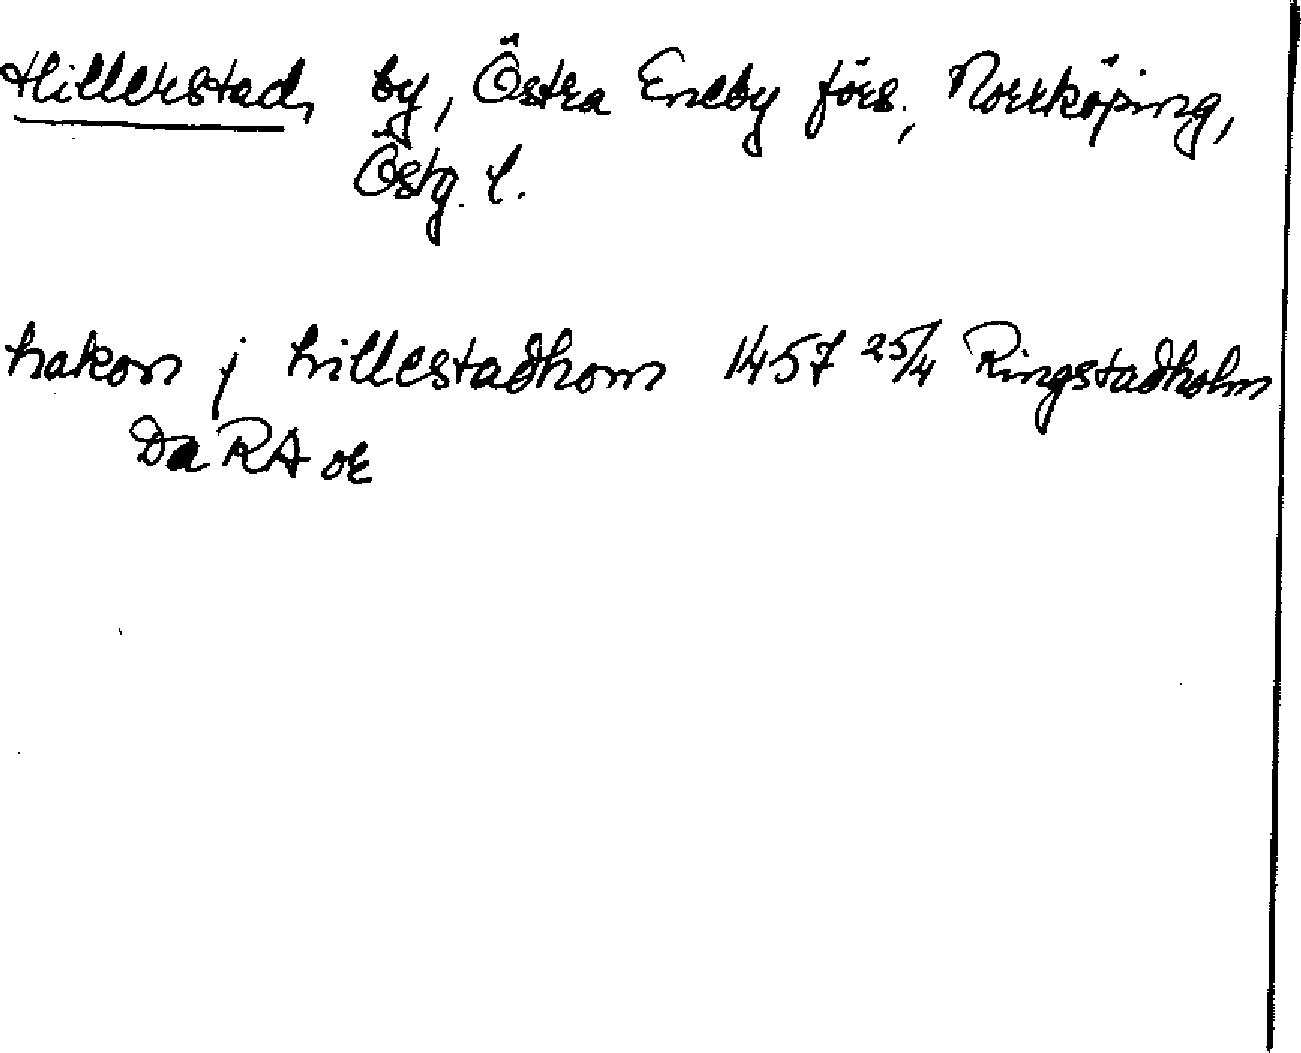 Hillerstad, by, Östra Eneby förs., Norrköping,
Östg. l.
hakon j hillestadhom 1457 25/4 Ringstadholm
Da RA or